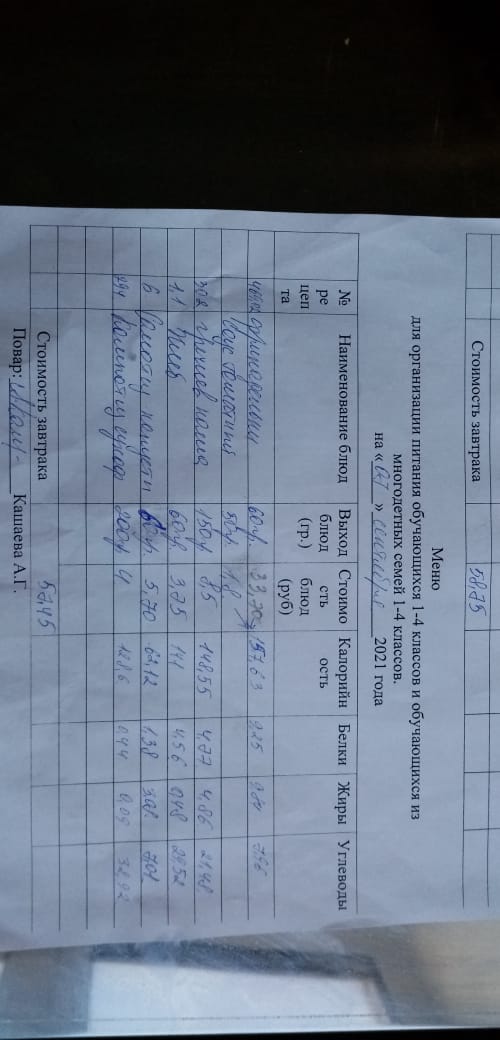 Стоимость завтрака 58.75
Меню
для организации питания обучающихся 1-4 классов и обучающихся из
многодетных семей 1-4 классов.
на « » сентября 2021 года
№ ре цеп та Наименование блюд Выход блюд (гр.) Стоимо сть блюд (руб) Калорийн ость Белки Жиры Углеводы
фрикадельки 60гр. 33,70 157,63 9,25 7,96
Соус томатный 50гр. 1,8
302 гречнев каша 150гр 8,5 148,55 4,77 4,86 21,48
1,1 Хлеб 60гр. 3,75 141 4,56 0,48 29,52
6 Салат из капусты 60гр. 5,70 62,12 1,38 7,02
294 Компот из сухоф 200гр 4 128,6 0,44 0,09 32,92
Стоимость завтрака 57,45
Повар: Кашаева А.Г.